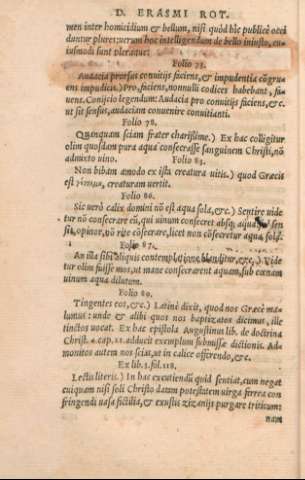 D. ERASMI ROT.
men inter homicidium & bellum, nisi quòd hîc publicè occi
duntur plures: uerum hoc intelligendum de bello iniusto, cu
iusmodi sunt pleraque.
Folio 75.
Audacia prorsus conuitijs faciens, & impudentia cōgru=
ens impudicis.) Pro, faciens, nonnulli codices habebant, fa
uens. Conijcio legendum: Audacia pro conuitijs faciens, & c.
ut sit sensus, audaciam conuenire conuitianti.
Folio 78.
Quanquam sciam frater charissime.) Ex hac colligitur
olim quosdam pura aqua consecrasse sanguinem Christi, nō
admixto uino. Folio 83.
Non bibam amodo ex ista creatura uitis.) quod Græcis
est creaturam uertit.
Folio 86.
Sic uerò calix domini nō est aqua sola, & c.) Sentire uide
tur nō consecrare eū, qui uinum consecret absq; aqua, sed sen
sit, opinor, nō ritè cōsecrare, licet non cōsecretur aqua sola.
Folio 87.
An illa sibi aliquis contemplatione blanditur, & c.) Vide
tur olim fuisse mos, ut mane consecrarent aquam, sub cœnam
uinum aqua dilutum.
Folio 89.
Tingentes eos, & c.) Latinè dixit, quod nos Græcè ma=
lumus: unde & alibi quos nos baptizatos dicimus, ille
tinctos uocat. Ex hac epistola Augustinus lib. de doctrina
Christ. 4. cap. 21. adducit exemplum submissæ dictionis. Ad=
monitos autem nos scias, ut in calice offerendo, & c.
Ex lib. 1. fol. 118.
Lectis literis.) In hac excutiendū quid sentiat, cum negat
cuiquam nisi soli Christo datam potestatem uirga ferrea con
fringendi uasa fictilia, & exustis zizanijs purgare triticum:
nam